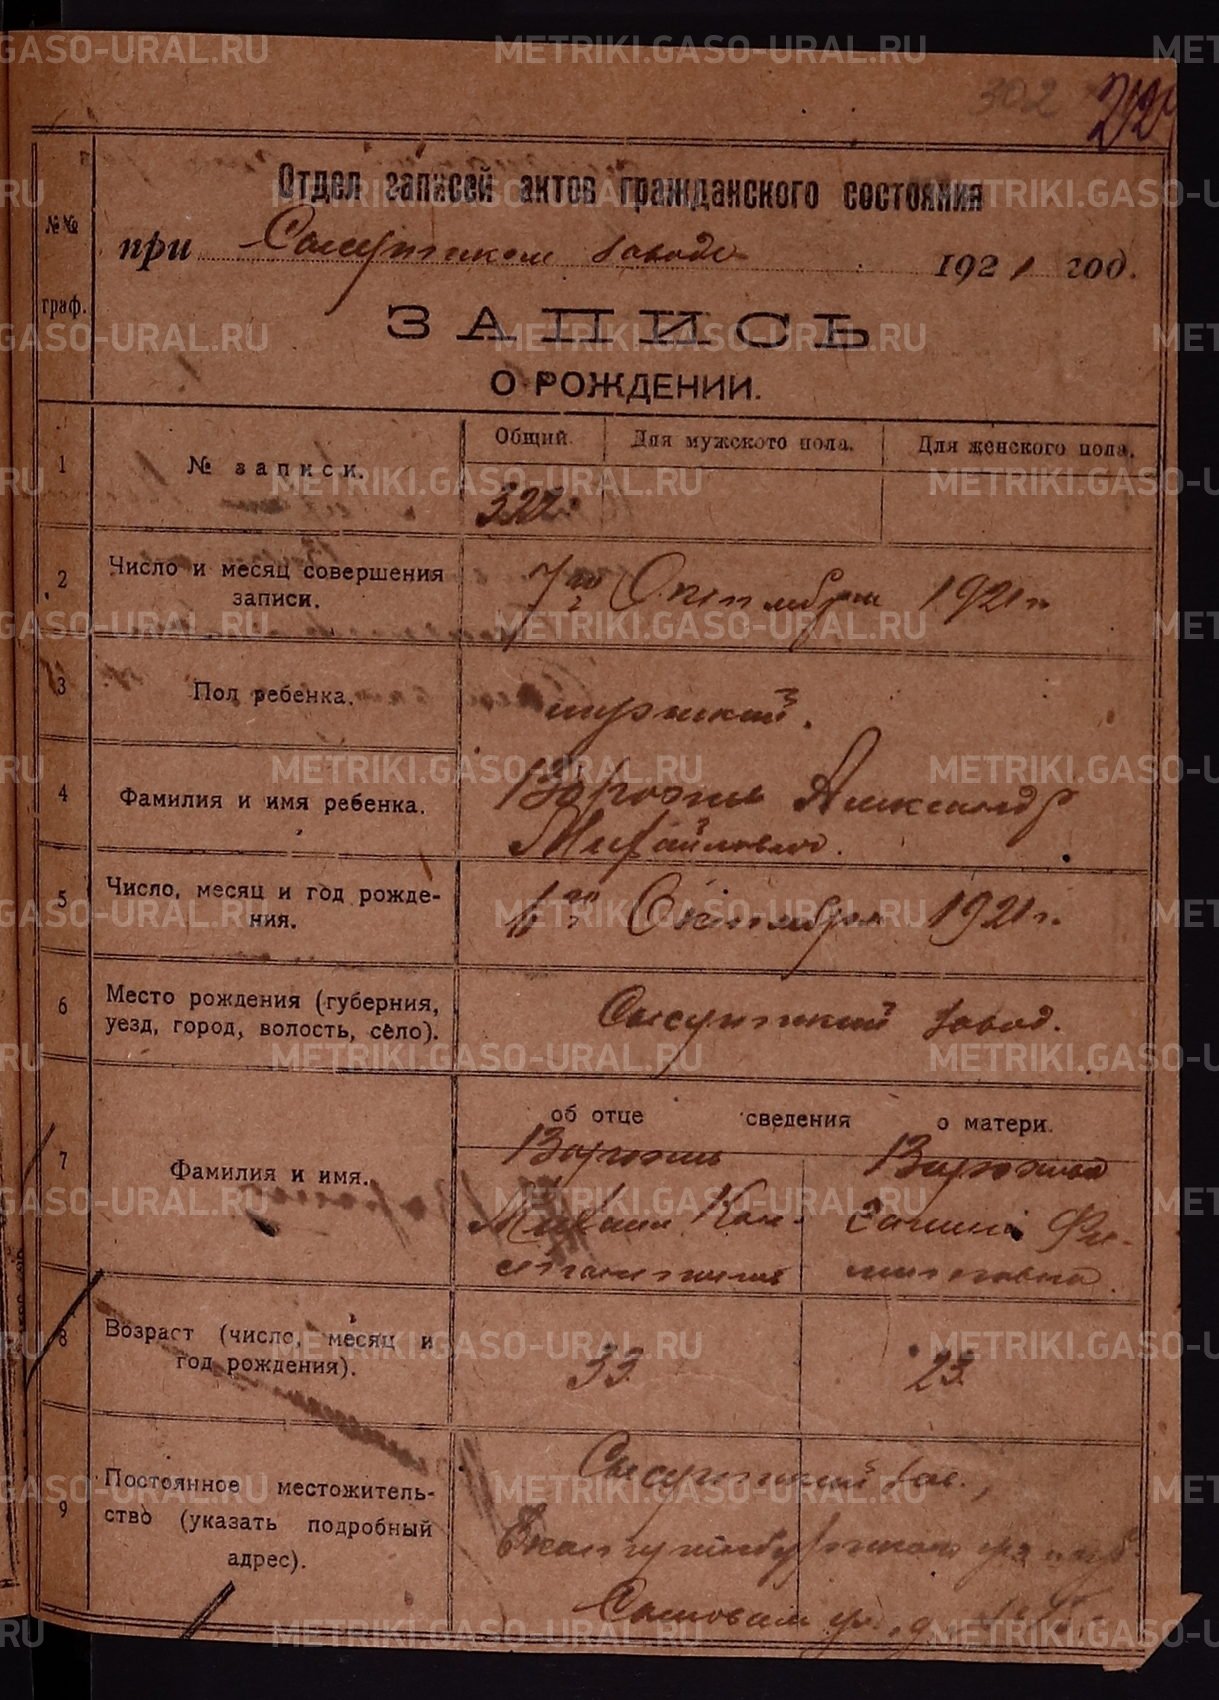 302 212
Отдел записей актов гражданского состояния
№№ граф.
при Сысертском заводе 1921 год.
ЗАПИСЬ
О РОЖДЕНИИ.
Общий. Для мужского пола. Для женского пола.
1 № записи. 322
2 Число и месяц совершения записи. 7го Октября 1921 г.
3 Пол ребенка. мужской.
4 Фамилия и имя ребенка. Александр
Михайлович.
5 Число, месяц и год рожде-
ния. 1го Октября 1921 г.
6 Место рождения (губерния,
уезд, город, волость, село). Сысертский завод.
об отце сведения о матери.
7 Фамилия и имя.
Михаил Кон-
стантинов
8 Возраст (число, месяц и
год рождения). 33. 23.
9 Постоянное местожитель-
ство (указать подробный
адрес).
Сысертский зав.,
Екатеринбургской
METRIKI.GASO-URAL.RU